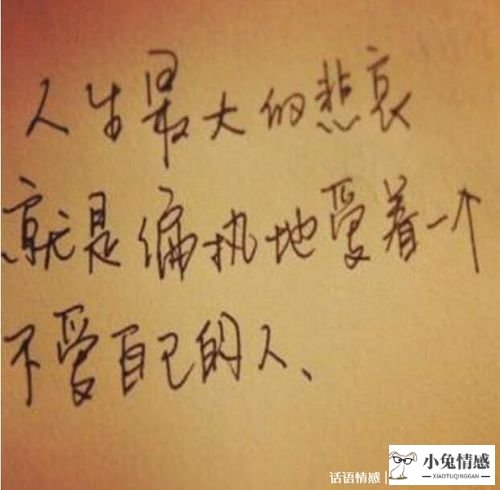 人生最大的悲哀
就是偏执地爱着一个
不爱自己的人、
话语情感
小兔情感
XIAOTUQINGGAN